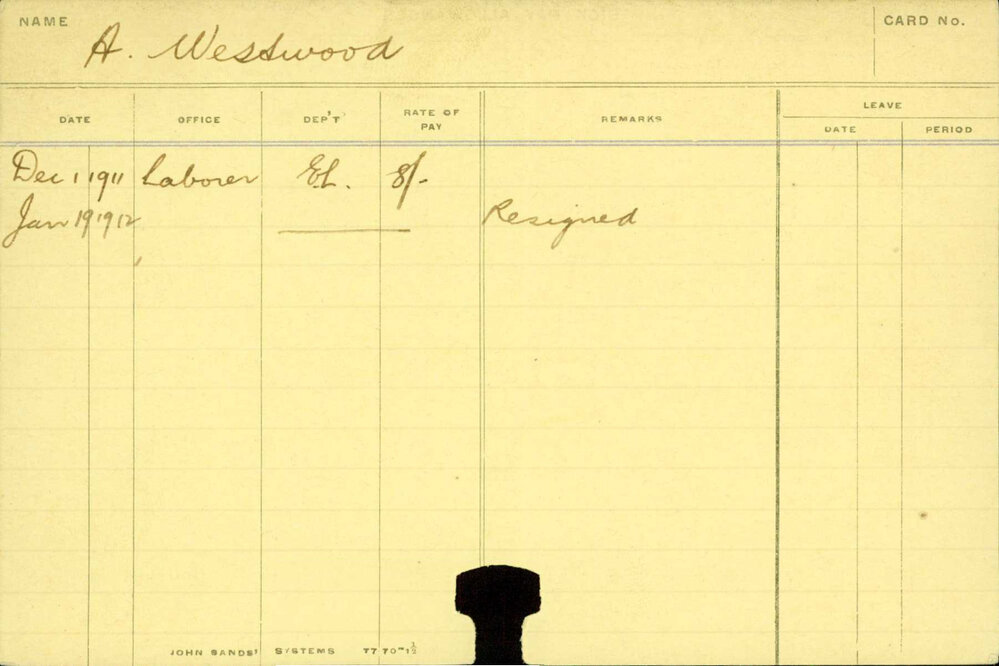 NAME A. Westwood CARD No.
DATE OFFICE DEP'T RATE OF PAY REMARKS LEAVE
DATE PERIOD
Dec 1 1911 Laborer E.L. 8/-
Jan 19 1912 Resigned
JOHN SANDS' SYSTEMS 7770-1½